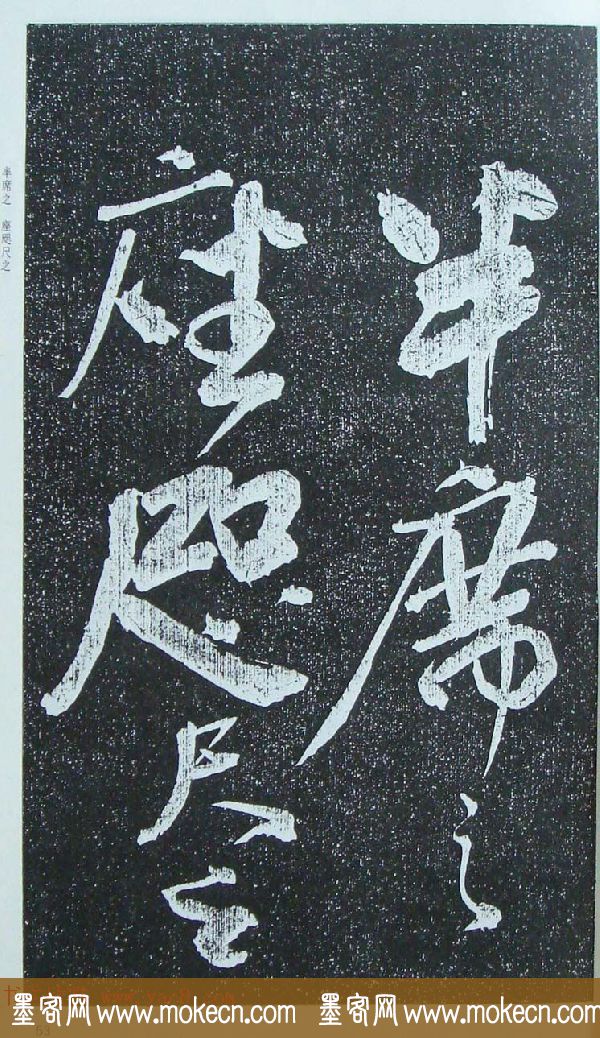 半席之
座咫尺之
半席之 座咫尺之
墨客网 www.mokecn.com 墨客网 www.mokecn.com
53